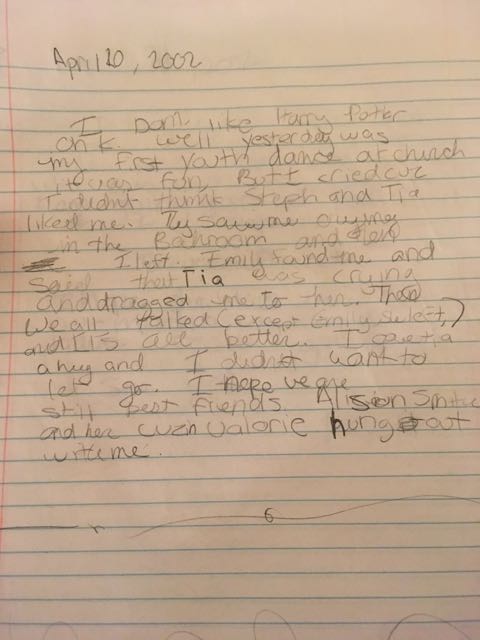 April 20, 2002
I Dont like Harry Potter
oh k. well yesterday was
my first youth dance at church
it was fun, Butt I cried cuz
I didnt thmink Steph and Tia
liked me. Ty saw me crying
in the Bathroom and then
I left. Emily found me and
said that Tia was crying
and dragged me to her. Then
we all talked (except Emily she left,)
and its all better. I gave tia
a hug and I didnt want to
let go. I hope we are
still best friends. Alison Smith
and her cuzin valorie hung out
write me.
6